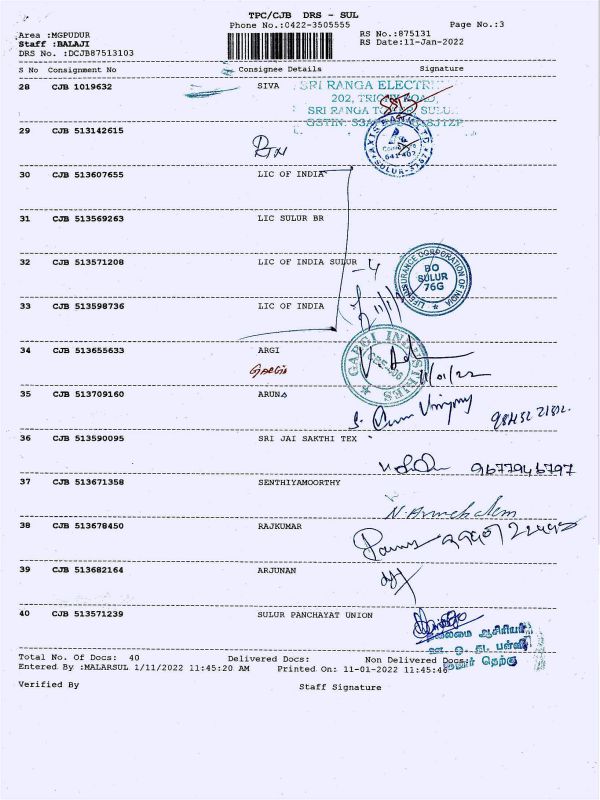 TPC/CJB DRS - SUL
Phone No.:0422-3505555
Page No.:3
Area :MGPUDUR
RS No.:875131
Staff :BALAJI
RS Date:11-Jan-2022
DRS No. :DCJB87513103
S No Consignment No Consignee Details Signature
28 CJB 1019632 SIVA
SRI RANGA ELECTRI
202, TRICHY ROAD,
SRI RANGA TOWER, SULU
29 CJB 513142615
RTN
AXIS BANK LTD
641 402
SULUR-3267
30 CJB 513607655 LIC OF INDIA
31 CJB 513569263 LIC SULUR BR
32 CJB 513571208 LIC OF INDIA SULUR
-4
LIFE INSURANCE CORPORATION OF INDIA
BO
SULUR
76G
33 CJB 513598736 LIC OF INDIA
34 CJB 513655633 ARGI
GARGI INDUSTRIES
Gargi
11/01/22
35 CJB 513709160 ARUN
36 CJB 513590095 SRI JAI SAKTHI TEX
9677946797
37 CJB 513671358 SENTHIYAMOORTHY
38 CJB 513678450 RAJKUMAR
39 CJB 513682164 ARJUNAN
40 CJB 513571239 SULUR PANCHAYAT UNION
தலைமை ஆசிரியர்
பள்ளி
தெற்கு
Total No. Of Docs: 40 Delivered Docs: Non Delivered Docs:
Entered By :MALARSUL 1/11/2022 11:45:20 AM Printed On: 11-01-2022 11:45:46
Verified By Staff Signature